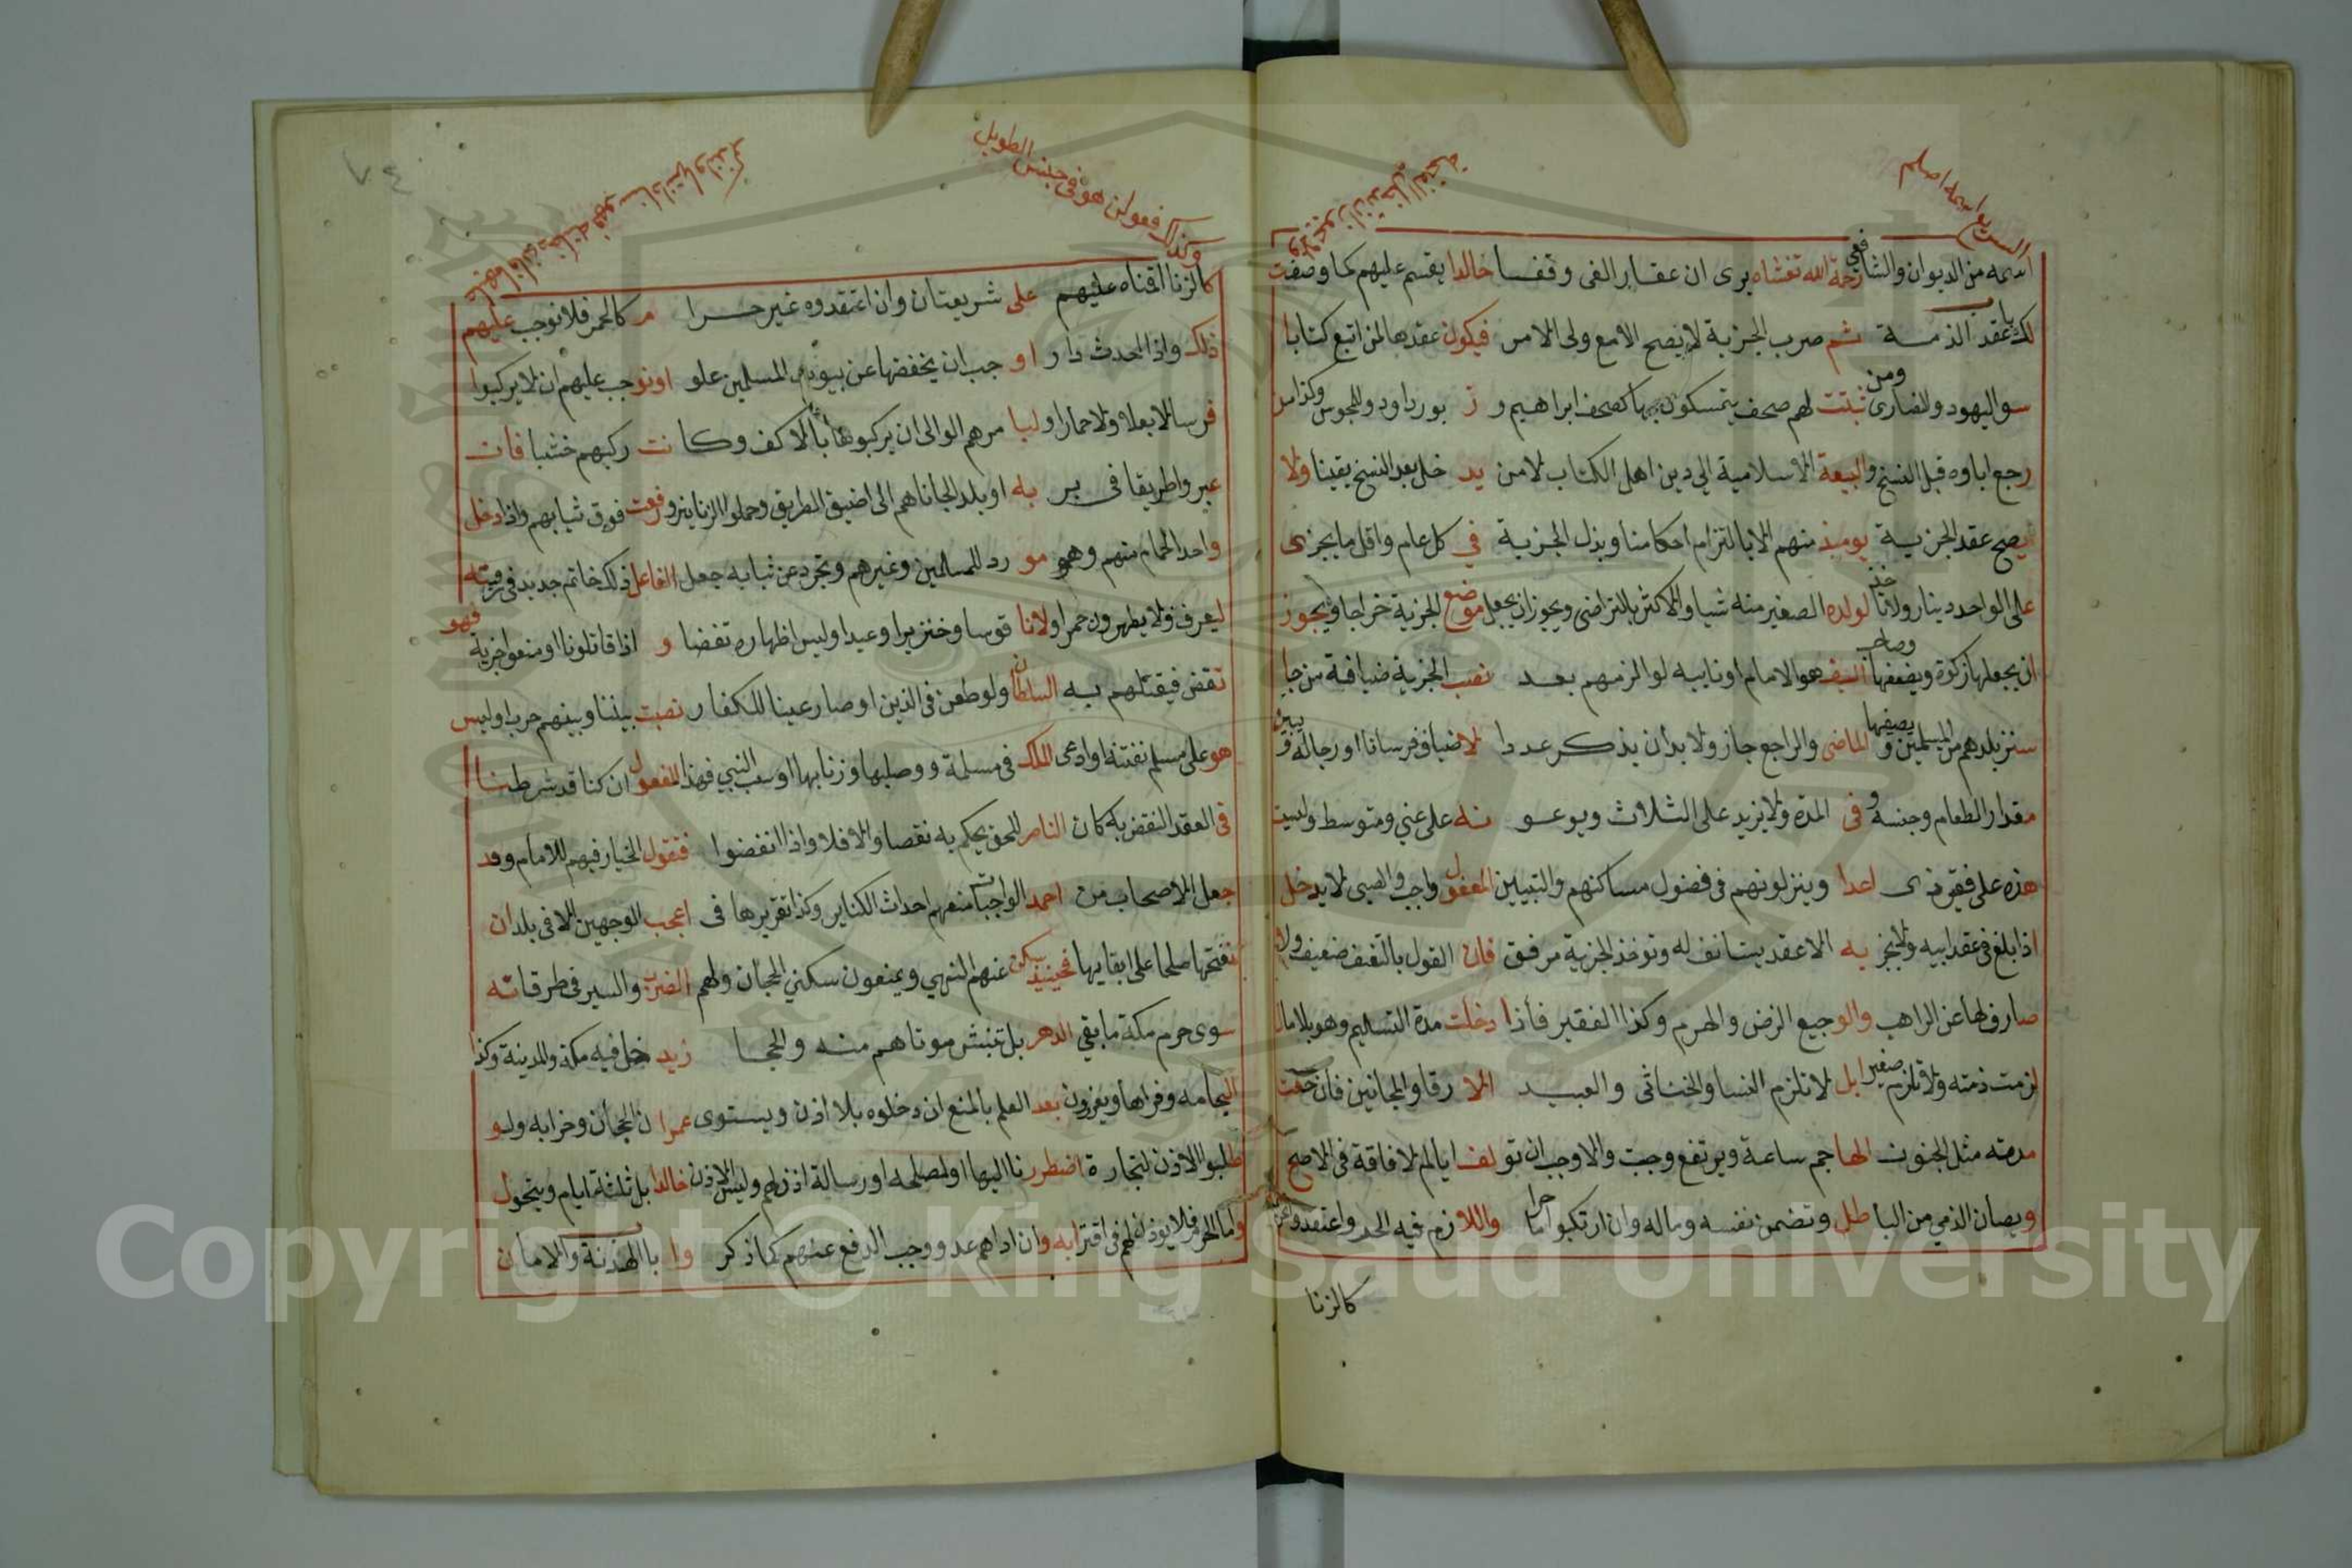 السريع اصله
اسمه من الديوان والشافعي رحمة الله تغشاه يرى ان عقار الفى وقفا خالدا يقسم عليهم كما وصفت
باب عقد الذمة ثم ضرب الجزية لا يصح الا مع ولى الامر فيكون عقدها لمن اتبع كتابا
سو اليهود والنصارى ومن ثبتت لهم صحف يتمسكون بها كصحف ابراهيم و ز بور داود وللمجوس وكذا من
رجع اباوه قبل النسخ والبيعة الاسلامية الي دين اهل الكتاب لا من يد خل بعد النسخ يقينا ولا
يصح عقد الجزية يومئذ منهم الا بالتزام احكامنا وبذل الجزية في كل عام واقل ما يجزى
على الواحد دينار ولانا خذ لولده الصغير منه شيا والاكثر بالتراضى ويجوز ان يجعل موضع الجزية خراجا ويجوز
ان يجعلها زكوة ويضعفها وصاحب السيف هو الامام او نايبه لو الزمهم بعد نصب الجزية ضيافة من جا
سنز بلدهم من المسلمين و يصفها الماضى والراجع جاز ولا بد ان يذكر عدد ا لاضياف فرسانا او رجاله و يبين
مقدار الطعام وجنسه و فى المدة ولا يزيد على الثلاث ويوعو نه على غني ومتوسط وليست
هذه على فقير ذى اعدا وينزلونهم فى فضول مساكنهم والتبيين المعفول واجب والصبى لا يدخل
اذا بلغ فى عقد ابيه ولا يجز يه الا عقد يستانف له وتوخذ الجزية برفق فان القول بالتعنف ضعيف ولا
صارف لها عن الراهب والو جيع الزمن والهرم وكذا الفقير فاذا دخلت مدة التسليم وهو بلا مال
لزمت ذمته ولا تلزم صغير ابل لا تلزم النسا والخناثى والعبيد الا رقا والمجانين فان خفت
مدته مثل الجنون الها جم ساعة ويرتفع وجبت والا وجب ان تو لف ايا لم لافاقة فى الاصح
ويصان الذمي من البا طل وتضمن نفسه وماله وان ارتكبوا حراما واللا زم فيه الحد واعتقدوا
كالزنا
وكذاك فعولن هو فى جنس الطويل
كالزنا اقمناه عليهم على شريعتان وان اعتقدوه غير حرا م كالخمر فلا نوجب عليهم
ذلك واذا احدث دار او جب ان يخفضها عن بيوت المسلمين علو اونوجب عليهم ان لا يركبوا
فرسا لا بغلا ولا حمارا وليا مرهم الوالى ان يركبوها بالاكف وكا نت ركبهم خشبا فان
عبروا طريقا فى بر يه او بلد الجاناهم الى اضيق الطريق وحملوا الزنانير ورفعت فوق ثيابهم واذا دخل
واحد الحمام منهم وهو مو رد للمسلمين وغيرهم وتجرد عن ثيابه جعل الفاعل ذلك خاتم حديد فى رقبته
ليعرف ولا يظهرون خمرا ولانا قوسا وخنزيرا وعيدا وليس اظهاره نقضا و اذا قاتلونا او منعوا جزية فهو
نقض فيقتلهم به السلطان ولو طعن فى الدين او صار عينا للكفار نصبت بيننا وبينهم حربا وليس
هو على مسلم نفتنه او ادعى الملك فى مسلمة ووصلها وزنا بها او سب النبي فهذا المفعول ان كنا قد شرطنا
فى العقد النقض به كان الناصر للحق يحكم به نقصا والا فلا واذا انتقضوا فنقول الخيار فيهم للامام وقد
جعل الاصحاب من احمد الواجبات منعهم احداث الكنايس وكذا تقريرها فى اعجب الوجهين الا فى بلد ان
نفتحها صلحا على ابقايها فحينيذ يكن عنهم النهي ويمنعون سكني الحجان ولهم الضرب والسير فى طرقاته
سوى حرم مكة ما بقي الدهر بل تنبش موتاهم منه والحجا زيد خل فيه مكة والمدينة وكذا
اليمامه وقراها ويعزرون بعد العلم بالمنع ان دخلوه بلا اذن ويستوى عمرا ن الحجان وخرابه ولو
طلبوا الاذن لتجارة اضطررنا اليها او لمصلحه او رسالة اذن لهم وليس الاذن خالدا بل ثلثة ايام ويتحول
واما الحرم فلا يوذن لهم فى اقترابه وان اداهم عدو وجب الدفع عنهم كما ذكر وا باب الهدنة والامان
Copyright © King Saud University